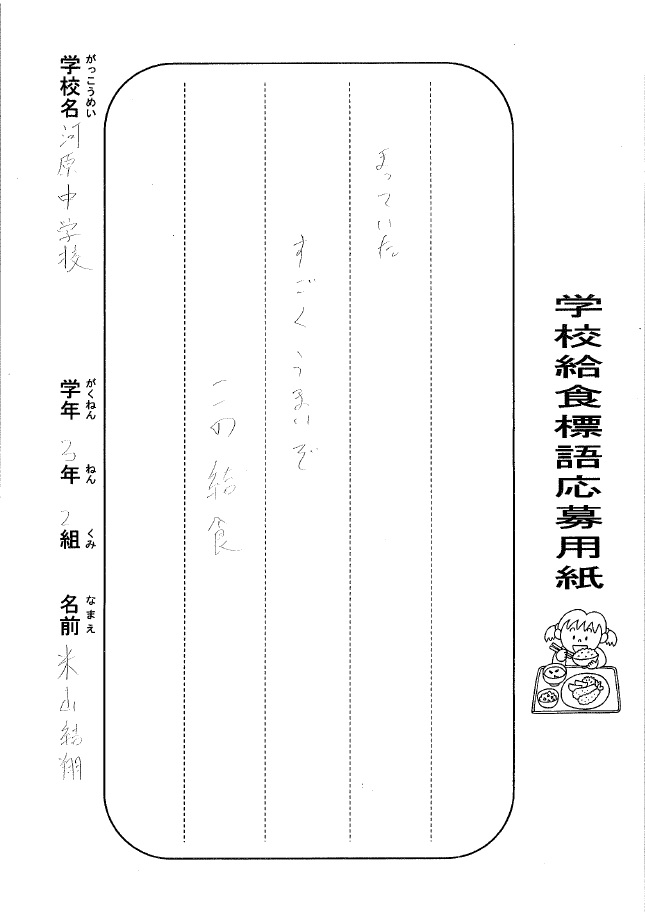 学校給食標語応募用紙
まっていた
すごくうまいぞ
この給食
がっこうめい
学校名 河原中学校
がくねん ねん くみ
学年 3年 2組
なまえ
名前 米山結翔